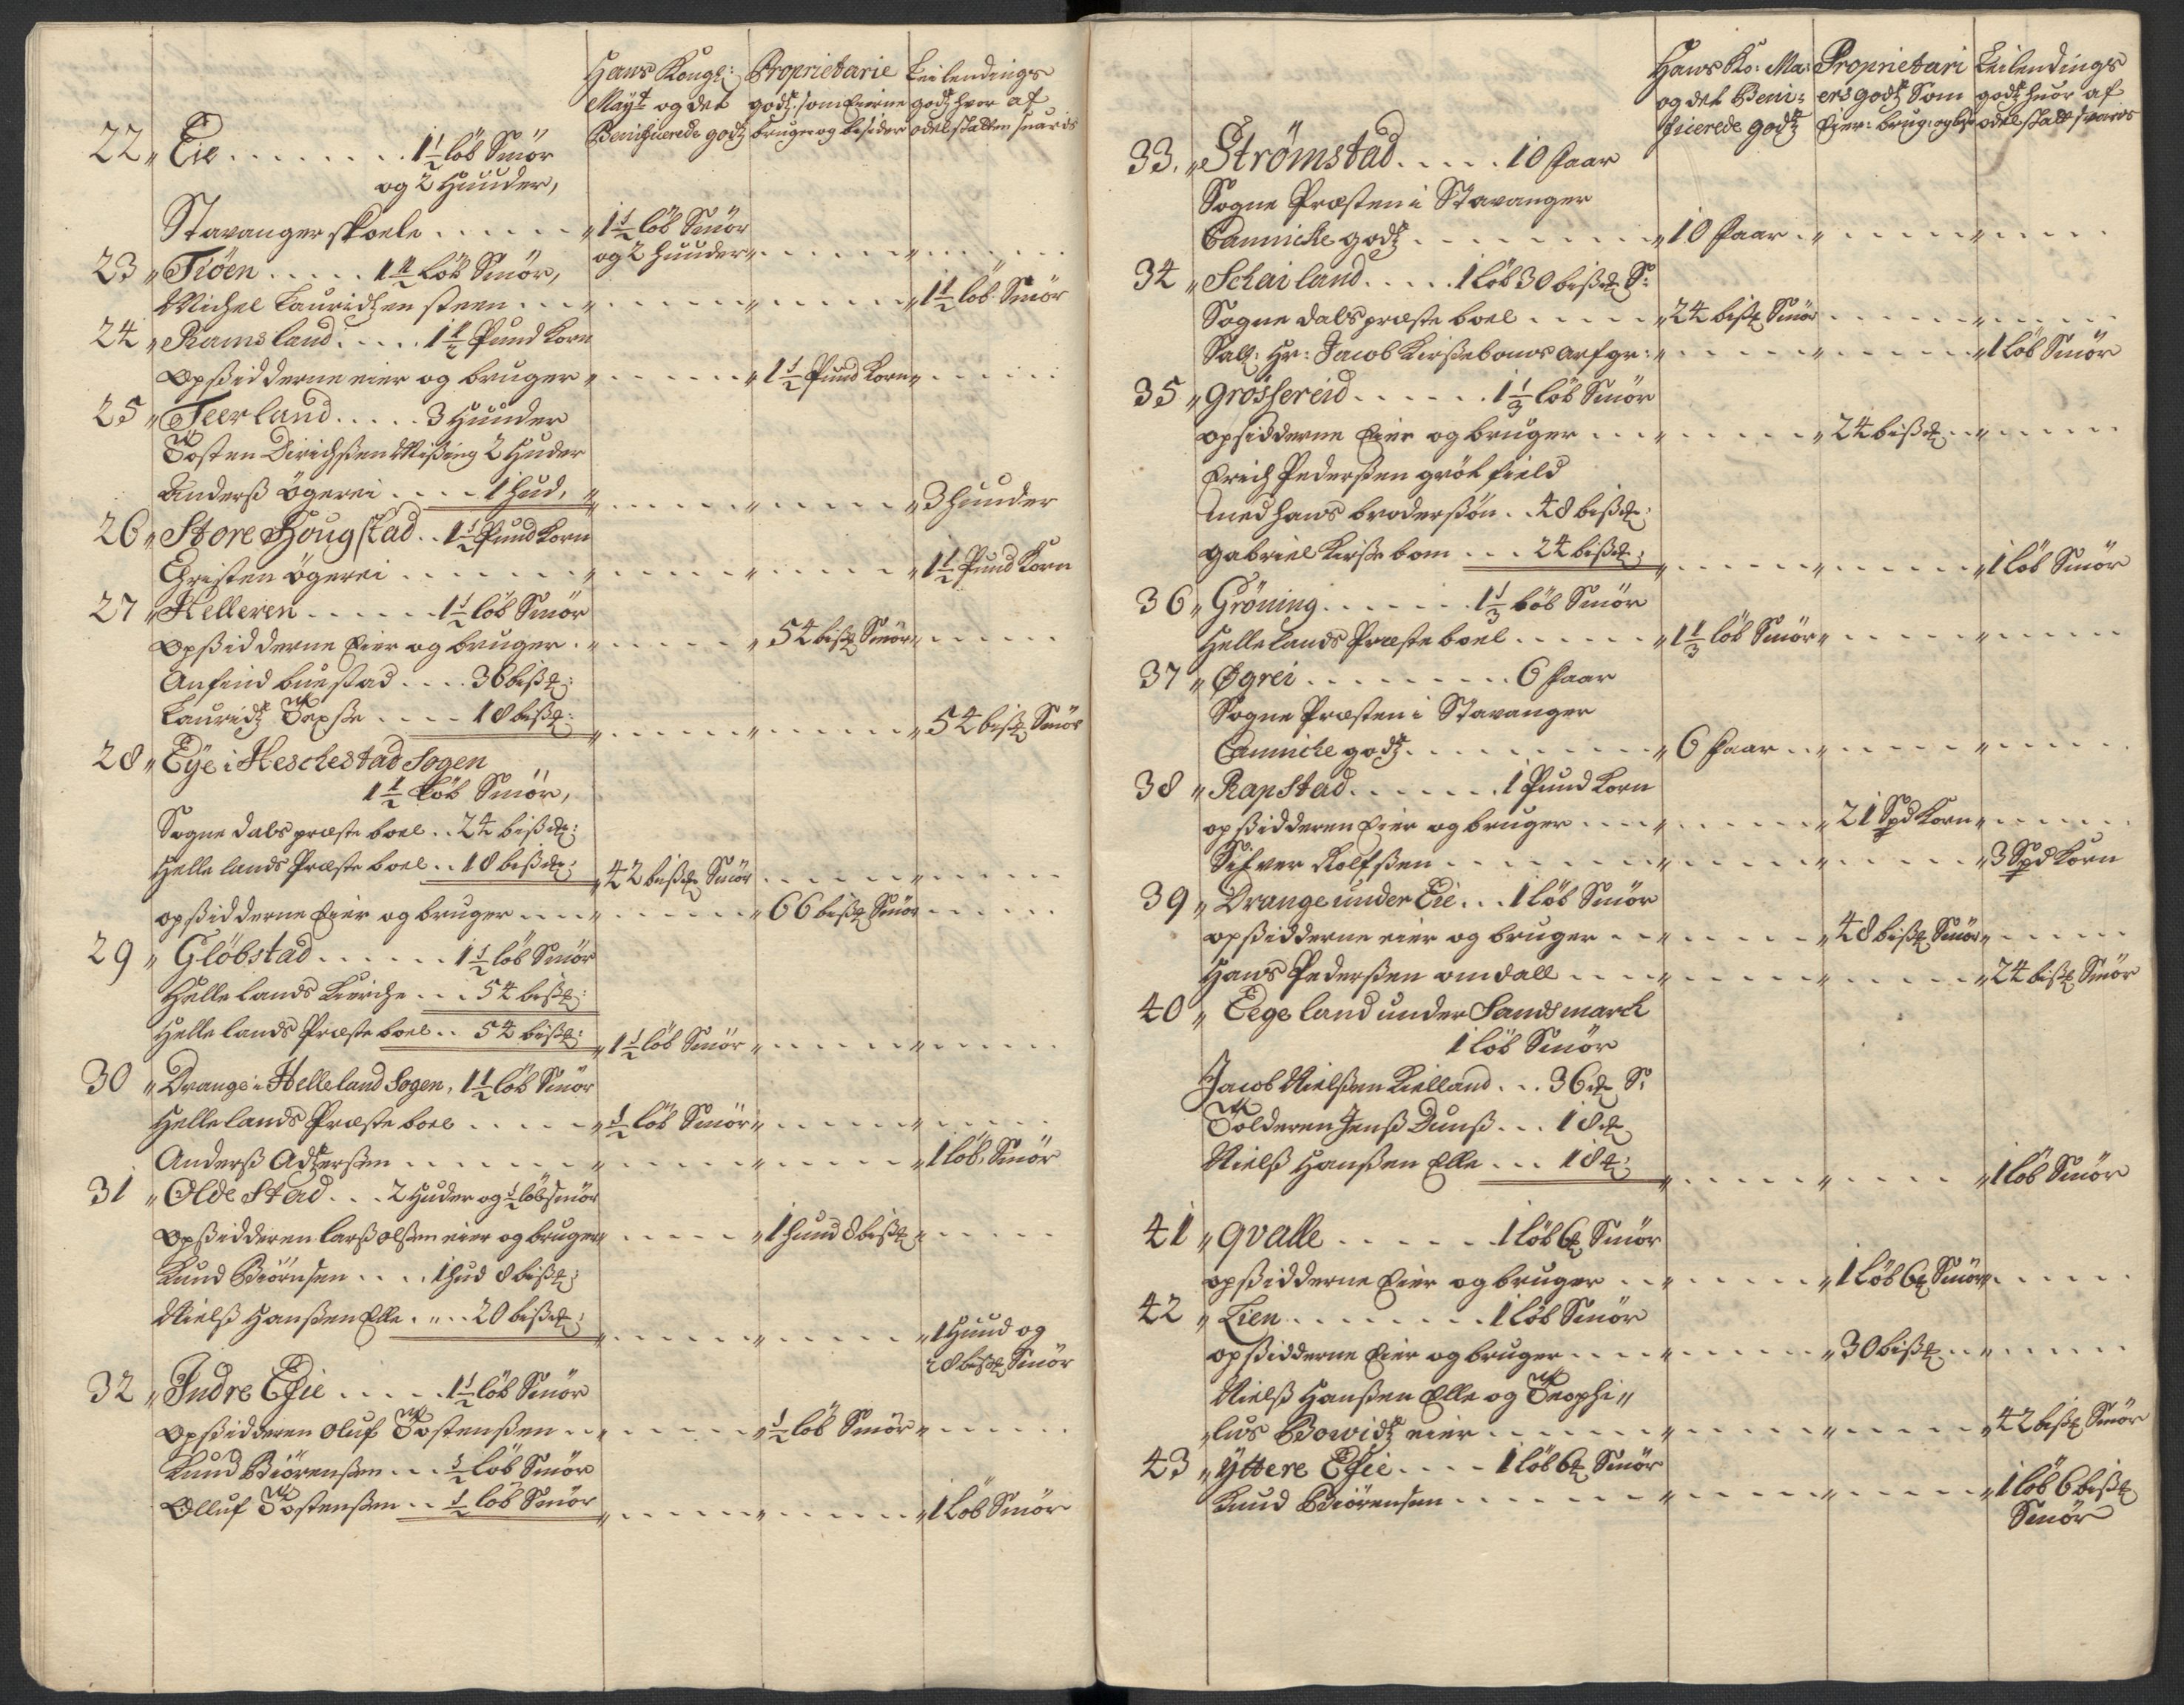 Hans Kongl: Proprietarie Leilendings
Mayt og det godtz som Eierne godtz hvor af
Benificerede godtz bruger og besider odelskatten suaris
22 „ Eie . . . . . . . . 1½ löb Smör
og 2 Huuder,
Stavanger skoele . . . . . „ 1½ löb Smör
og 2 huuder „ . . . . . „ . . . . .
23 „ Tiöen . . . . . 1½ löb Smör,
Michel Lauridtzen steen . . . „ . . . . . „ . . . . . „ 1½ löb Smör
24 „ Ramsland . . . . . 1½ Pund Korn
Opsidderne eier og bruger „ . . . . . „ 1½ Pund Korn „ . . . . .
25 „ Teerland . . . . . 3 Huuder
Tosten Dirichsen Wising 2 Huder
Anders Ögerei . . . . 1 hud, „ . . . . . „ . . . . . „ 3 huuder
26 „ Store Hougstad . . 1½ Pund Korn
Christen Ögerei . . . . . . „ . . . . . „ . . . . . „ 1½ Pund Korn
27 „ Helleren . . . . . . 1½ löb Smör
Opsidderne Eier og bruger . „ . . . . . „ 54 bisp Smör „ . . . . .
Anfind buestad . . . . 36 bisp:
Lauridtz Tepse . . . . 18 bisp: „ . . . . . „ . . . . . „ 54 bisp Smör
28 „ Eÿe i Heschestad Sogen
1½ löb Smör,
Sogne dals præste boel . . 24 bispd:
Hellelands Præste boel . . 18 bispd: „ 42 bispd Smör . . . . . „ . . . . .
opsidderne Eier og bruger . . . „ . . . . . „ 66 bisp Smör . . . . .
29 „ Glöbstad . . . . . . 1½ löb Smör
Hellelands Kirche . . . 54 bisp:
Hellelands Præste boel . . 54 bisp: „ 1½ löb Smör „ . . . . . „ . . . . .
30 „ Drange i Helleland Sogen, 1½ löb Smör
Hellelands Præste boel . . . . . „ ½ löb Smör „ . . . . . „ . . . . .
Anders Adtzersen . . . . . . „ . . . . . „ . . . . . „ 1 löb Smör
31 „ Olde Stad . . . 2 Huder og ½ löb smör
Opsidderen lars olsen eier og bruger „ . . . . . „ 1 huud 8 bisp „ . . . . .
Knud Biörnsen . . . . 1 hud 8 bisp:
Niels Hansen Elle . „ . . 20 bispd: „ . . . . . „ . . . . . „ 1 Huud og
28 bispd Smör
32 „ Indre Esie . . . . . 1½ löb Smör
Opsidderen Oluf Tostensen . . „ . . . . . „ ½ löb Smör „ . . . . .
Knud Biörensen . . . ½ löb Smör
Olluf Tostensen . . ½ löb Smör „ . . . . . „ . . . . . „ 1 löb Smör
Hans Ko: Ma: Proprietari Leilendings
og det Beni: ers godtz Som godtz huor af
ficerede godtz Eier: brug: og bes odelskatt suaris
33. „ Strömstad . . . . . 10 faar
Sogne Præsten i Stavanger
Cannicke godtz . . . . . . . . „ 10 faar . „ . . . . . „ . . . . .
34 „ Schailand . . . . . 1 löb 30 bispd S:
Sogne dals præste boel . . . . . „ 24 bisp Smör . . . . . „ . . . . .
Sall: Hr: Jacob Kirseboms arfgr: „ . . . . . „ . . . . . „ 1 löb Smör
35 „ Grössereid . . . . . . 1⅓ löb Smör
opsidderne Eier og bruger . . . „ . . . . . „ 24 bispd . . „ . . . . .
Erich Pedersen gröt field
med hans brodersön . . 48 bispd:
Gabriel Kirsebom . . . 24 bispd: „ . . . . . „ . . . . . „ 1 löb Smör
36 „ Gröning . . . . . . . 1⅓ löb Smör
Hellelands Præste boel . . . . . „ 1⅓ löb Smör „ . . . . . „ . . . . .
37 „ Øgrei . . . . . . . . . 6 faar
Sogne Præsten i Stavanger
Cannicke godtz . . . . . . . . „ 6 faar . . „ . . . . . „ . . . . .
38 „ Rapstad . . . . . . . 1 Pund Korn
opsidderen Eier og bruger . . . . „ . . . . . „ 21 Spd Korn „ . . . . .
Sifver Rolfsen . . . . . . . . „ . . . . . „ . . . . . „ 3 Spd Korn
39 „ Drange under Eie . . . 1 löb Smör
opsidderne eier og bruger . . „ . . . . . „ 48 bisp Smör „ . . . . .
Hans Pedersen omdall . . . . „ . . . . . „ . . . . . „ 24 bisp Smör
40 „ Eege land under Sandsmark
1 löb Smör
Jacob Nielsen Kielland . . . 36 pd S:
Tolderen Jens Duus . . . 18 pd
Niels Hansen Elle . . . 18 pd: „ . . . . . „ . . . . . „ 1 löb Smör
41 „ qvalle . . . . . . 1 löb 6 pd Smör
opsidderne Eier og bruger . . „ . . . . . „ 1 löb 6 pd Smör „ . . . . .
42 „ Lien . . . . . . . . 1 löb Smör
opsidderne Eier og bruger . . . . „ . . . . . „ 30 bisp . . „ . . . . .
Niels Hansen Elle og Teophi „
„ lus Bowidtz eier . . . . . . „ . . . . . „ . . . . . „ 42 bisp Smör
43 „ yttere Esie . . . . 1 löb 6 pd Smör
Knud Biörensen . . . . . . . „ . . . . . „ . . . . . „ 1 löb 6 bisp
Smör